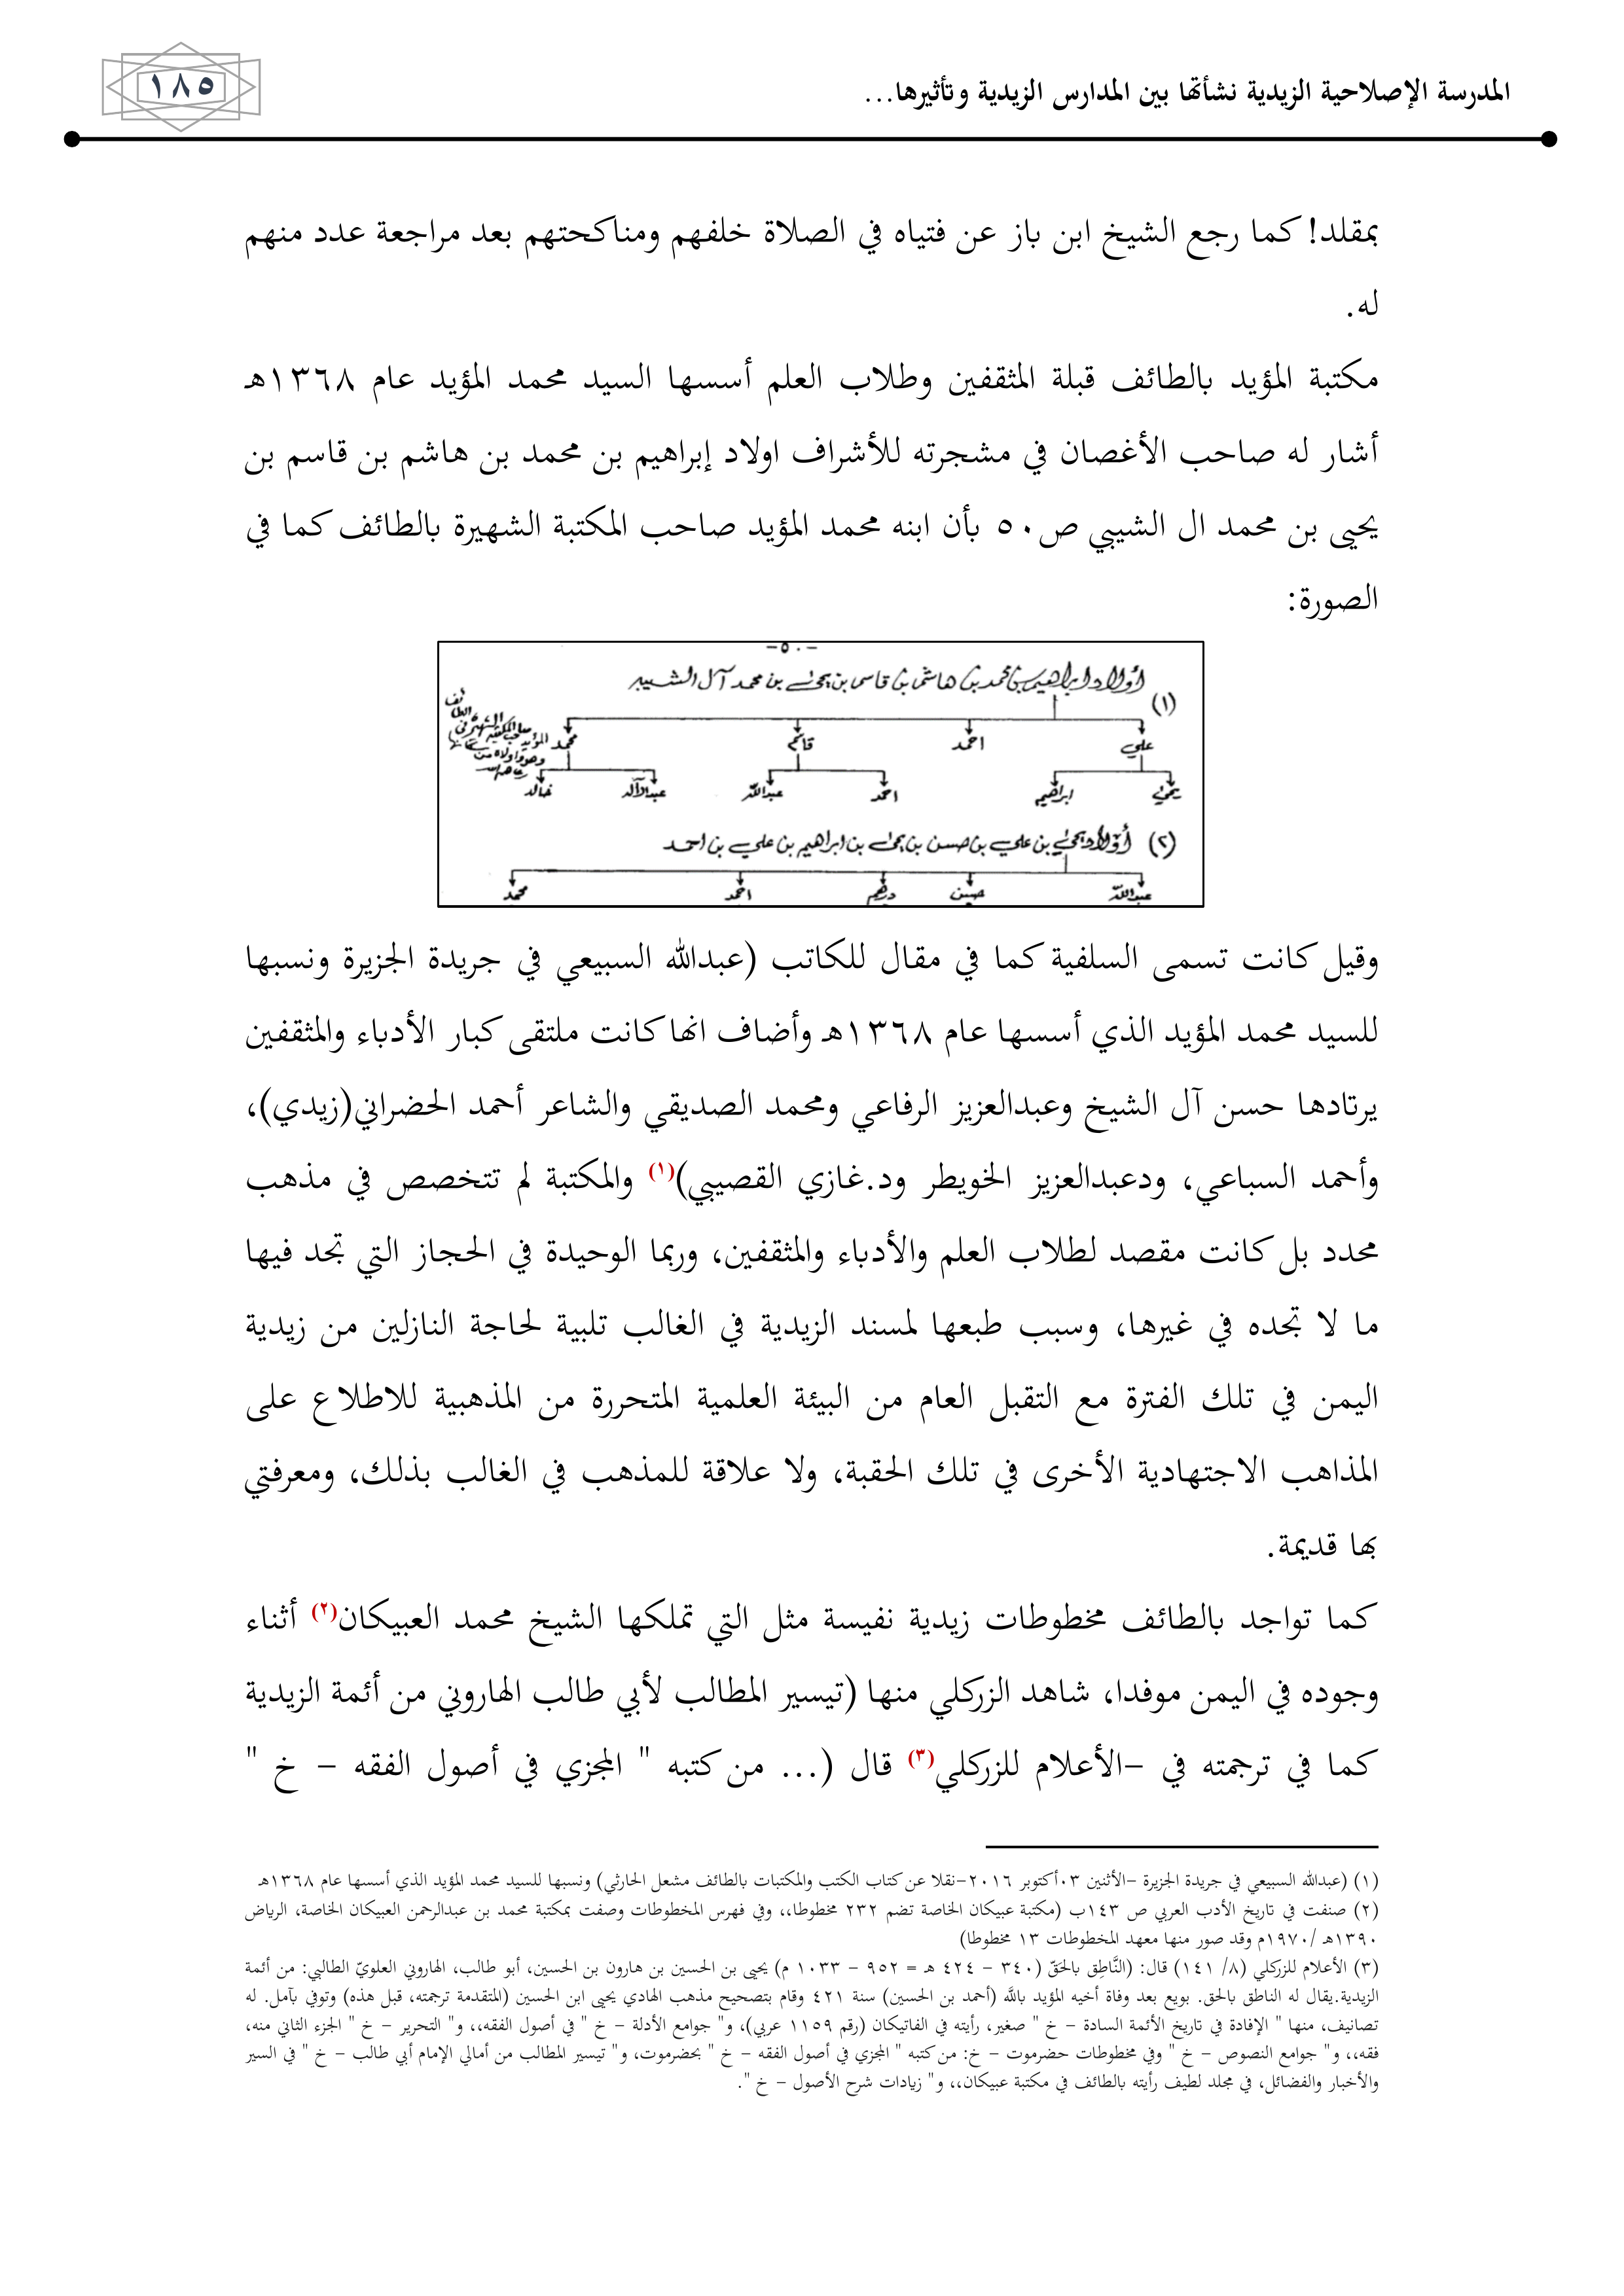 المدرسة الإصلاحية الزيدية نشأتها بين المدارس الزيدية وتأثيرها...
١٨٥
بمقلد! كما رجع الشيخ ابن باز عن فتياه في الصلاة خلفهم ومناكحتهم بعد مراجعة عدد منهم
له.
مكتبة المؤيد بالطائف قبلة المثقفين وطلاب العلم أسسها السيد محمد المؤيد عام ١٣٦٨هـ
أشار له صاحب الأغصان في مشجرته للأشراف اولاد إبراهيم بن محمد بن هاشم بن قاسم بن
يحيى بن محمد ال الشيبي ص٥٠ بأن ابنه محمد المؤيد صاحب المكتبة الشهيرة بالطائف كما في
الصورة:
-٥٠-
(١) أولاد ابراهيم بن محمد بن هاشم بن قاسم بن يحيى بن محمد آل الشيبي
علي احمد قاسم محمد المؤيد صاحب المكتبة الشهيرة في الطائف
يحيى ابراهيم احمد عبدالله عبدالآله خالد
(٢) أولاد يحيى بن علي بن حسن بن يحيى بن ابراهيم بن علي بن احمد
عبدالله حسين درهم احمد محمد
وقيل كانت تسمى السلفية كما في مقال للكاتب (عبدالله السبيعي في جريدة الجزيرة ونسبها
للسيد محمد المؤيد الذي أسسها عام ١٣٦٨هـ وأضاف انها كانت ملتقى كبار الأدباء والمثقفين
يرتادها حسن آل الشيخ وعبدالعزيز الرفاعي ومحمد الصديقي والشاعر أحمد الحضراني(زيدي)،
وأحمد السباعي، ودعبدالعزيز الخويطر ود.غازي القصيبي)(١) والمكتبة لم تتخصص في مذهب
محدد بل كانت مقصد لطلاب العلم والأدباء والمثقفين، وربما الوحيدة في الحجاز التي تجد فيها
ما لا تجده في غيرها، وسبب طبعها لمسند الزيدية في الغالب تلبية لحاجة النازلين من زيدية
اليمن في تلك الفترة مع التقبل العام من البيئة العلمية المتحررة من المذهبية للاطلاع على
المذاهب الاجتهادية الأخرى في تلك الحقبة، ولا علاقة للمذهب في الغالب بذلك، ومعرفتي
بها قديمة.
كما تواجد بالطائف مخطوطات زيدية نفيسة مثل التي تملكها الشيخ محمد العبيكان(٢) أثناء
وجوده في اليمن موفدا، شاهد الزركلي منها (تيسير المطالب لأبي طالب الهاروني من أئمة الزيدية
كما في ترجمته في -الأعلام للزركلي(٣) قال (... من كتبه " المجزي في أصول الفقه - خ "
(١) (عبدالله السبيعي في جريدة الجزيرة -الأثنين ٠٣أكتوبر ٢٠١٦-نقلا عن كتاب الكتب والمكتبات بالطائف مشعل الحارثي) ونسبها للسيد محمد المؤيد الذي أسسها عام ١٣٦٨هـ
(٢) صنفت في تاريخ الأدب العربي ص ١٤٣ب (مكتبة عبيكان الخاصة تضم ٢٣٢ مخطوطا،، وفي فهرس المخطوطات وصفت بمكتبة محمد بن عبدالرحمن العبيكان الخاصة، الرياض
١٣٩٠هـ /١٩٧٠م وقد صور منها معهد المخطوطات ١٣ مخطوطا)
(٣) الأعلام للزركلي (٨/ ١٤١) قال: (النَّاطِق بالحَقّ (٣٤٠ - ٤٢٤ هـ = ٩٥٢ - ١٠٣٣ م) يحيى بن الحسين بن هارون بن الحسين، أبو طالب، الهاروني العلويّ الطالبي: من أئمة
الزيدية.يقال له الناطق بالحق. بويع بعد وفاة أخيه المؤيد باللَّه (أحمد بن الحسين) سنة ٤٢١ وقام بتصحيح مذهب الهادي يحيى ابن الحسين (المتقدمة ترجمته، قبل هذه) وتوفي بآمل. له
تصانيف، منها " الإفادة في تاريخ الأئمة السادة - خ " صغير، رأيته في الفاتيكان (رقم ١١٥٩ عربي)، و" جوامع الأدلة - خ " في أصول الفقه،، و" التحرير - خ " الجزء الثاني منه،
فقه،، و" جوامع النصوص - خ " وفي مخطوطات حضرموت - خ: من كتبه " المجزي في أصول الفقه - خ " بحضرموت، و" تيسير المطالب من أمالي الإمام أبي طالب - خ " في السير
والأخبار والفضائل، في مجلد لطيف رأيته بالطائف في مكتبة عبيكان،، و" زيادات شرح الأصول - خ ".